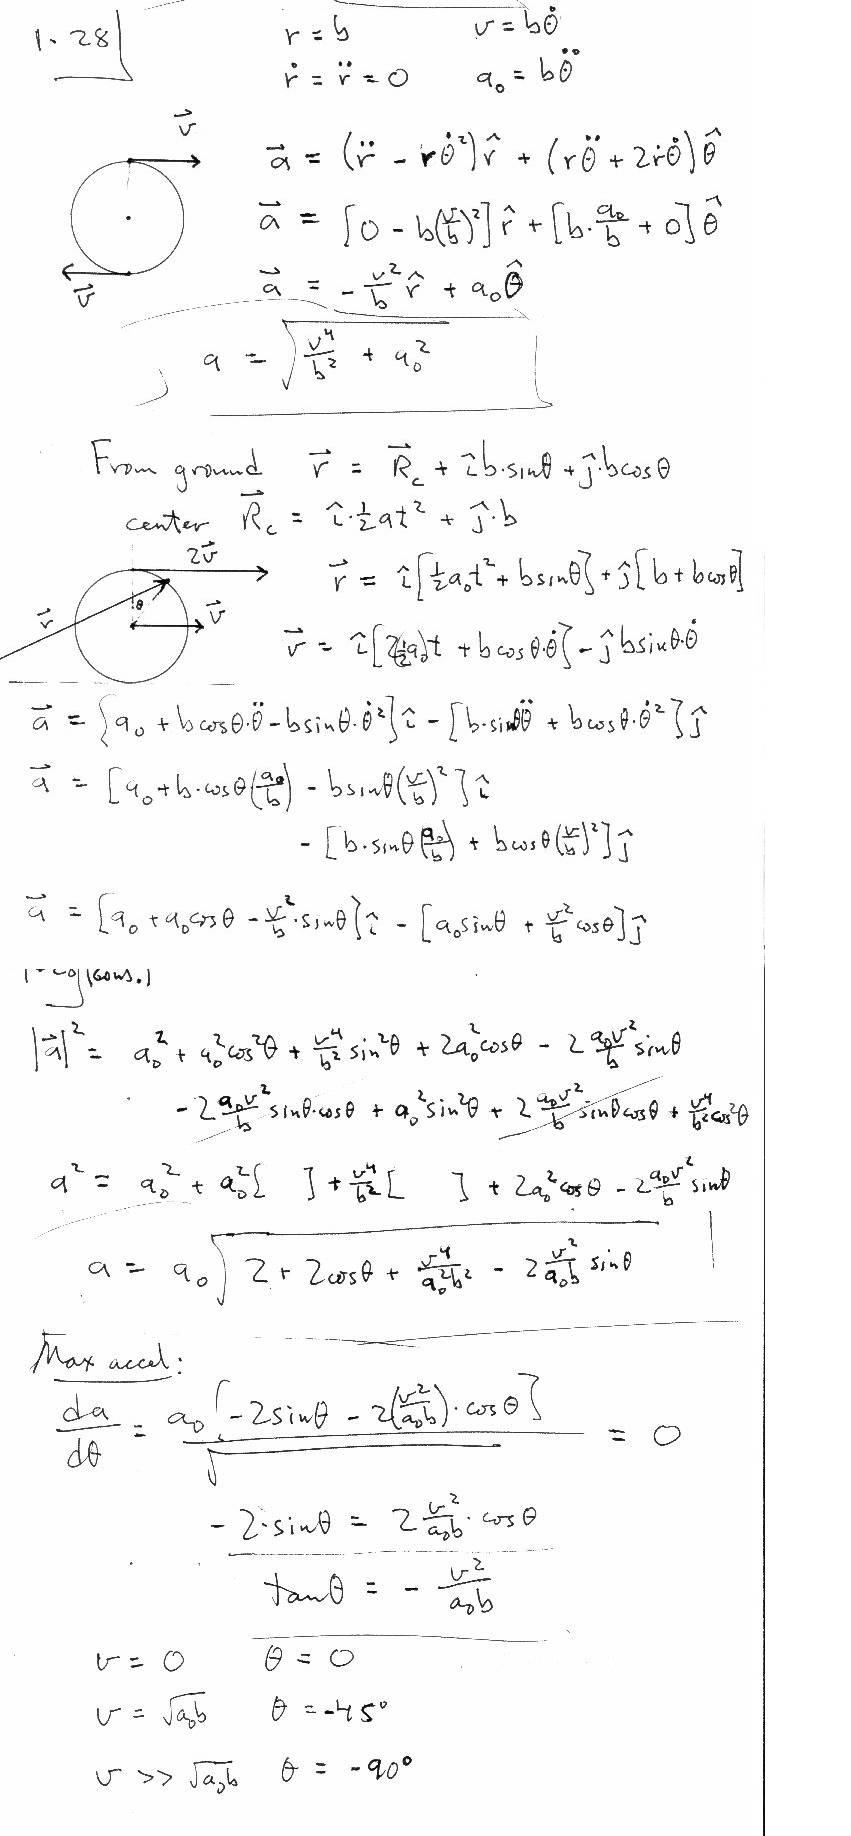 1.28
r = b    v = bθ̇
ṙ = r̈ = 0    a₀ = bθ̈
v⃗
a⃗ = (r̈ - rθ̇²)r̂ + (rθ̈ + 2ṙθ̇)θ̂
a⃗ = [0 - b(v/b)²]r̂ + [b·a₀/b + 0]θ̂
v⃗
a⃗ = -v²/b r̂ + a₀θ̂
a = √(v⁴/b² + a₀²)
From ground    r⃗ = R⃗_c + îb·sinθ + ĵ·bcosθ
center    R⃗_c = î·½at² + ĵ·b
2v⃗
θ
r⃗ = î[½a₀t² + bsinθ] + ĵ[b + bcosθ]
r⃗
v⃗
v⃗ = î[2(½a₀)t + bcosθ·θ̇] - ĵbsinθ·θ̇
a⃗ = [a₀ + bcosθ·θ̈ - bsinθ·θ̇²]î - [b·sinθθ̈ + bcosθ·θ̇²]ĵ
a⃗ = [a₀ + b·cosθ(a₀/b) - bsinθ(v/b)²]î
- [b·sinθ(a₀/b) + bcosθ(v/b)²]ĵ
a⃗ = [a₀ + a₀cosθ - v²/b·sinθ]î - [a₀sinθ + v²/b cosθ]ĵ
|a⃗|² = a₀² + a₀²cos²θ + v⁴/b² sin²θ + 2a₀²cosθ - 2 a₀v²/b sinθ
- 2 a₀v²/b sinθ·cosθ + a₀²sin²θ + 2 a₀v²/b sinθcosθ + v⁴/b² cos²θ
a² = a₀² + a₀²[    ] + v⁴/b² [    ] + 2a₀²cosθ - 2 a₀v²/b sinθ
a = a₀√(2 + 2cosθ + v⁴/a₀²b² - 2 v²/a₀b sinθ)
Max accel:
da/dθ = a₀[-2sinθ - 2(v²/a₀b)·cosθ]/√ = 0
-2·sinθ = 2 v²/a₀b · cosθ
tanθ = - v²/a₀b
v = 0    θ = 0
v = √a₀b    θ = -45°
v >> √a₀b    θ = -90°